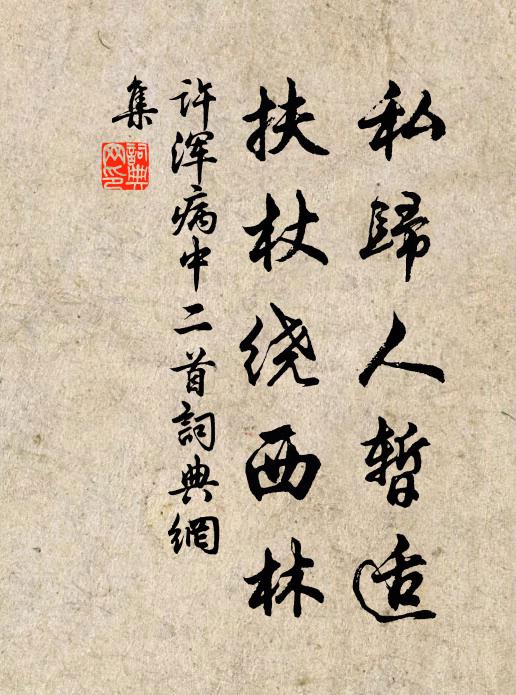 私歸人暫适
扶杖绕西林
许浑病中二首詞典網
集
詞典
网印